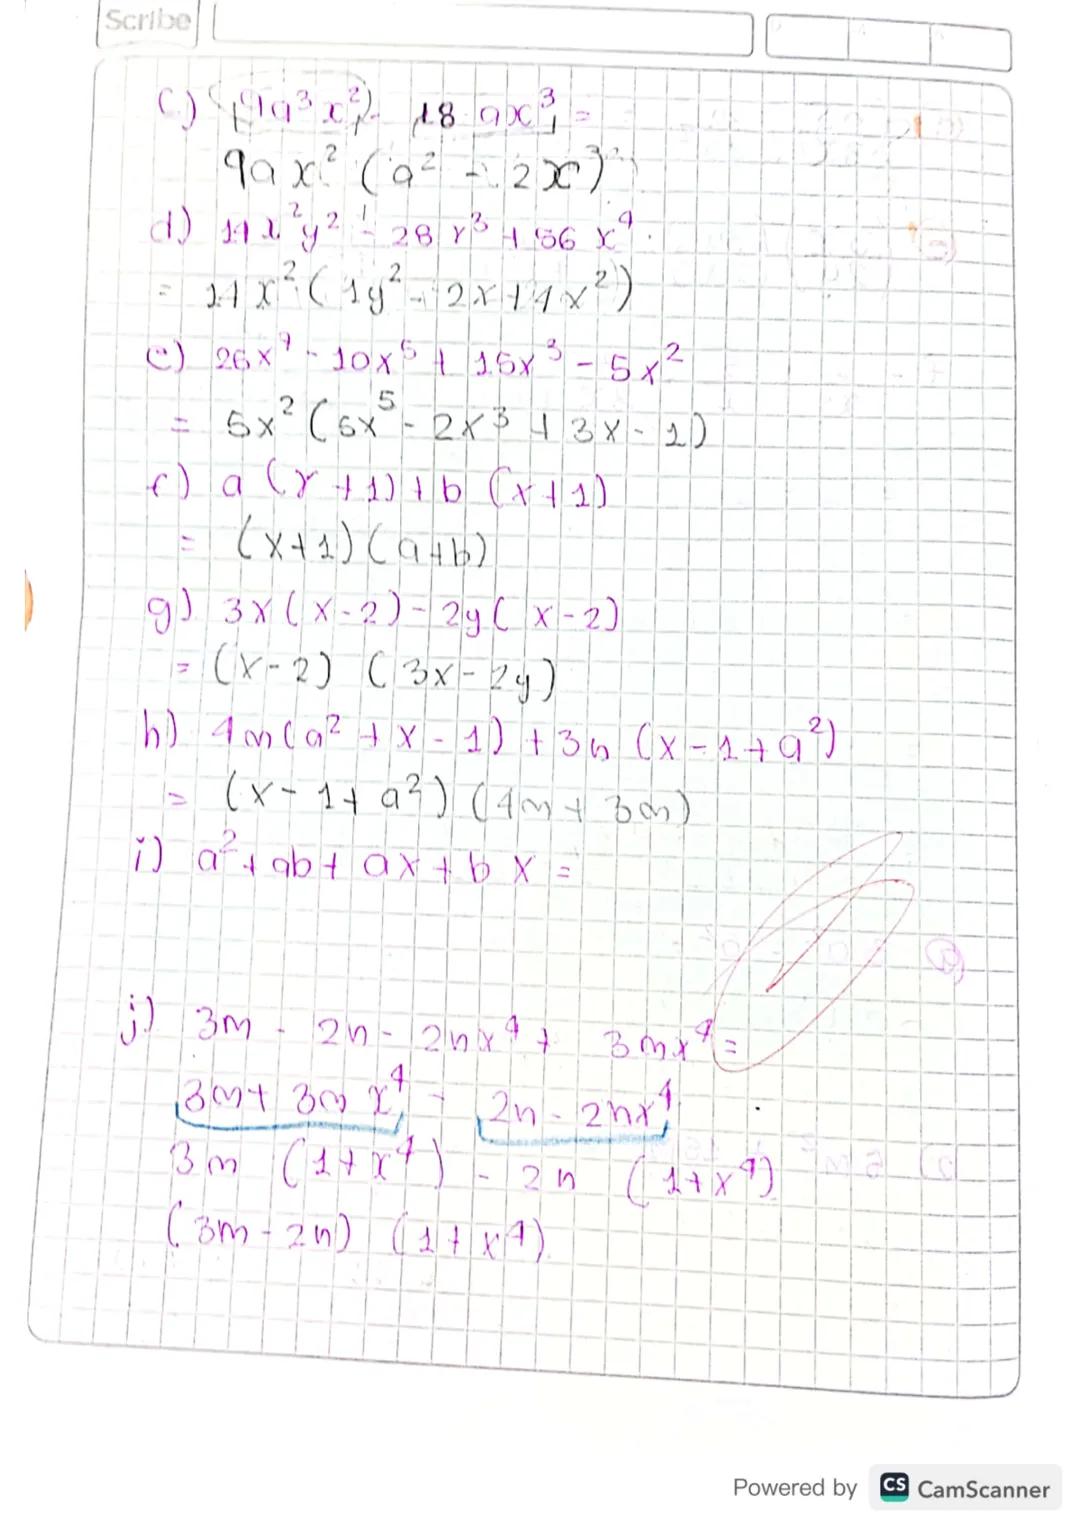 Scribe
c.) 9a³x² - 18 ax³ =
9a x² (a² - 2x)
d.) 14x²y² - 28x³ + 56x⁴.
= 14x² (1y² - 2x + 4x²)
e) 25x⁷ - 10x⁵ + 15x³ - 5x²
= 5x² (5x⁵ - 2x³ + 3x - 1)
f) a (x + 1) + b (x + 1)
= (x+1) (a+b)
g) 3x (x - 2) - 2y (x - 2)
= (x - 2) (3x - 2y)
h) 4m (a² + x - 1) + 3n (x - 1 + a²)
= (x - 1 + a²) (4m + 3m)
i) a² + ab + ax + b x =
j) 3m - 2n - 2nx⁴ + 3mx⁴ =
3m + 3m x⁴ - 2n - 2nx⁴
3m (1 + x⁴) - 2n (1 + x⁴)
(3m - 2n) (1 + x⁴)
Powered by CS CamScanner